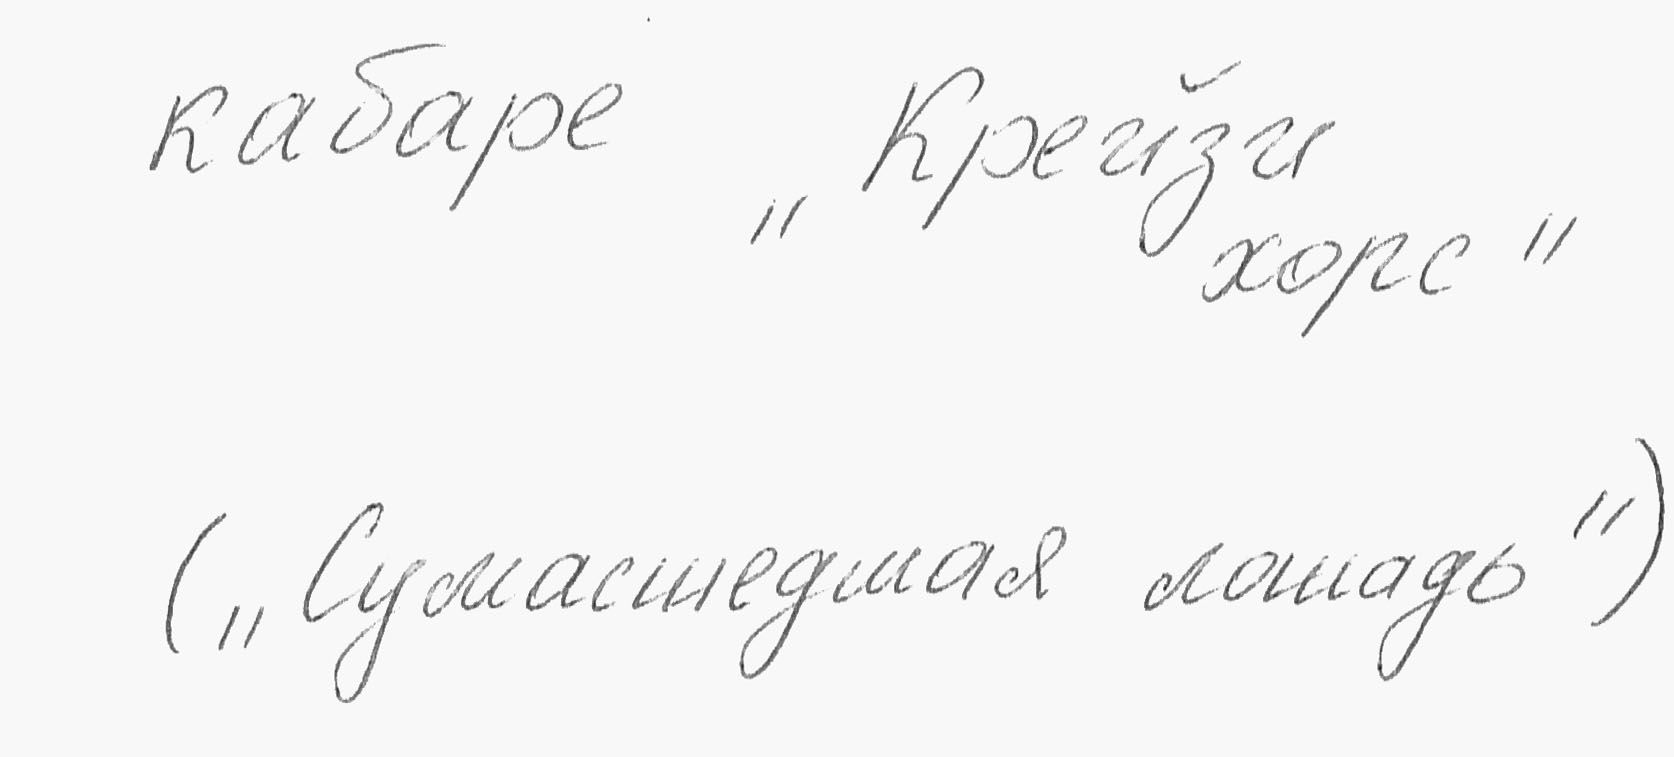 кабаре „Крейзи
хорс"
(„Сумасшедшая лошадь")